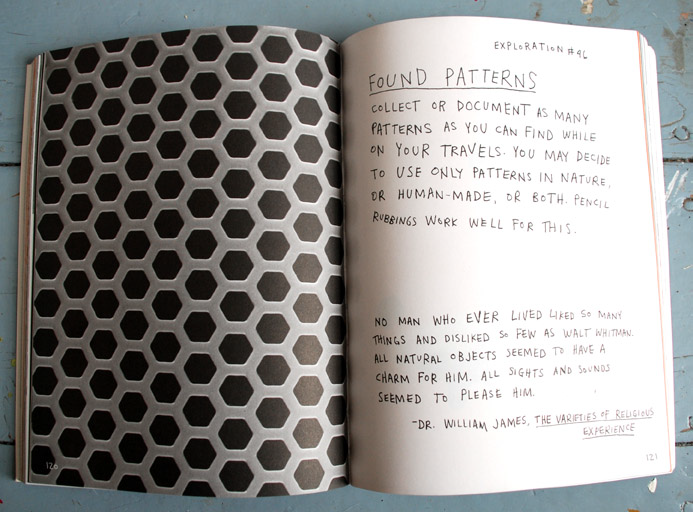 EXPLORATION #46
FOUND PATTERNS
COLLECT OR DOCUMENT AS MANY
PATTERNS AS YOU CAN FIND WHILE
ON YOUR TRAVELS. YOU MAY DECIDE
TO USE ONLY PATTERNS IN NATURE,
OR HUMAN-MADE, OR BOTH. PENCIL
RUBBINGS WORK WELL FOR THIS.
NO MAN WHO EVER LIVED LIKED SO MANY
THINGS AND DISLIKED SO FEW AS WALT WHITMAN.
ALL NATURAL OBJECTS SEEMED TO HAVE A
CHARM FOR HIM. ALL SIGHTS AND SOUNDS
SEEMED TO PLEASE HIM.
-DR. WILLIAM JAMES, THE VARIETIES OF RELIGIOUS
EXPERIENCE
120
121